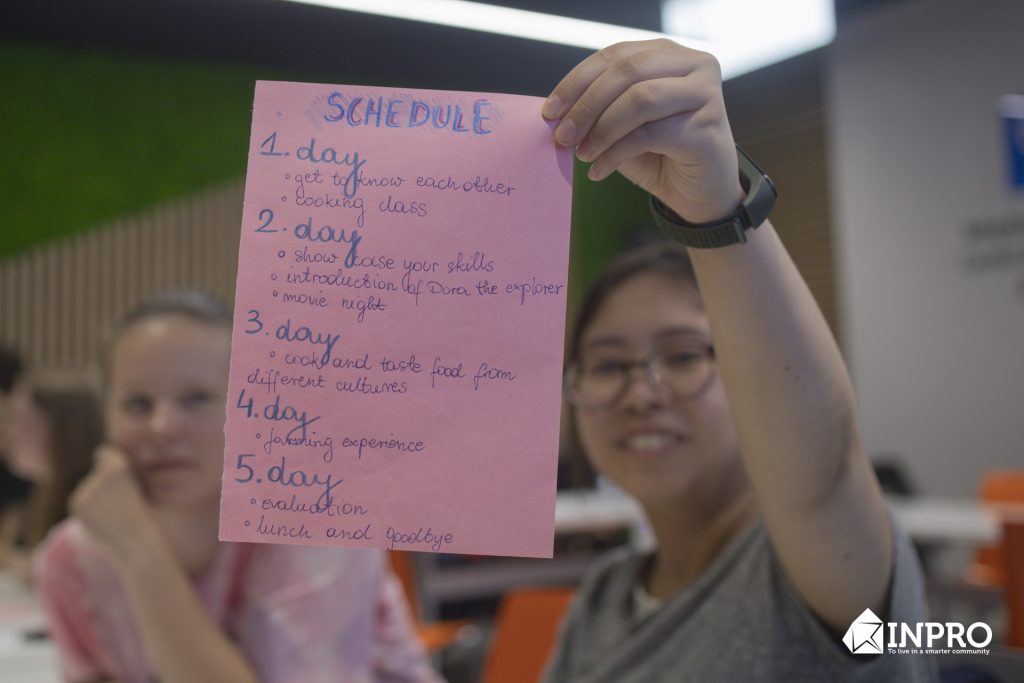 SCHEDULE
1. day
° get to know each other
° cooking class
2. day
° show case your skills
° introduction of Dora the explorer
° movie night
3. day
° cook and taste food from
different cultures
4. day
° farming experience
5. day
° evaluation
° lunch and goodbye
INPRO
To live in a smarter community